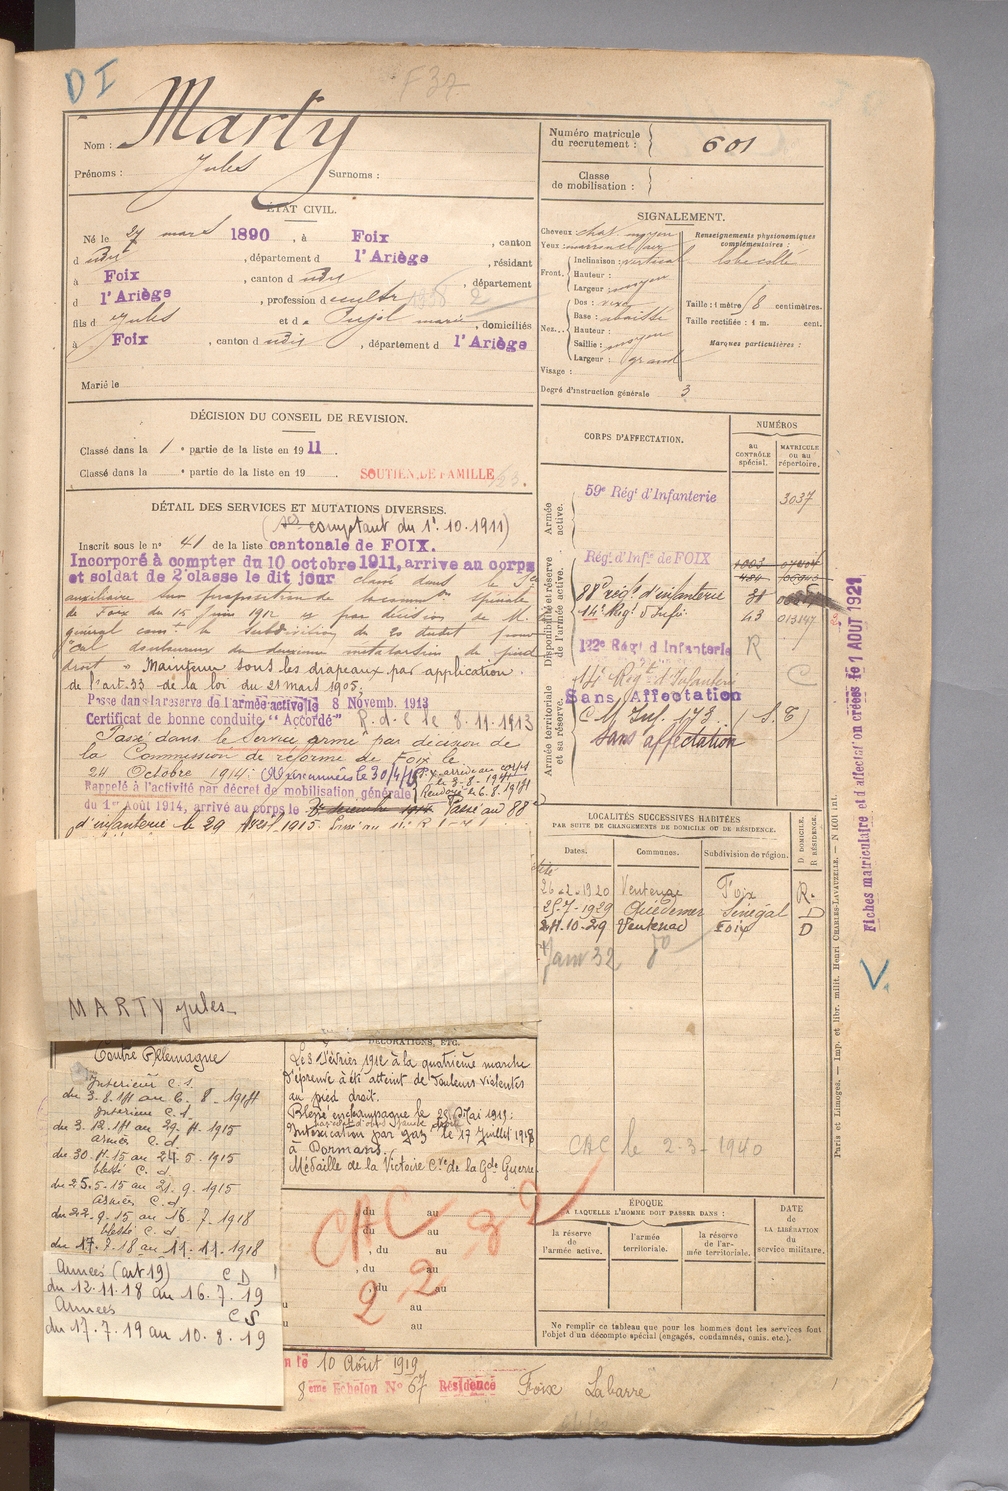 D I
F 37
Nom : Marty
Prénoms : Jules Surnoms :
Numéro matricule du recrutement : 601
Classe de mobilisation :
ÉTAT CIVIL.
Né le 27 mars 1890, à Foix, canton
d udit, département d l'Ariège, résidant
à Foix, canton d udit, département
d l'Ariège, profession d cultr
fils d Jules et d e Pujol marie, domiciliés
à Foix, canton d udit, département d l'Ariège
Marié le
SIGNALEMENT.
Cheveux chat. moyen
Yeux marron
Renseignements physionomiques complémentaires :
Front. Inclinaison : vertical
Hauteur :
Largeur : moyen
Nez. Dos :
Base : abaissée
Hauteur :
Saillie : moyen
Largeur : grand
Visage :
Degré d'instruction générale 3
Taille : 1 mètre 8 centimètres.
Taille rectifiée : 1 m. cent.
Marques particulières :
DÉCISION DU CONSEIL DE REVISION.
Classé dans la 1e partie de la liste en 1911.
Classé dans la e partie de la liste en 19
SOUTIEN DE FAMILLE
DÉTAIL DES SERVICES ET MUTATIONS DIVERSES.
comptant du 1r.10.1911)
Inscrit sous le n° 41 de la liste cantonale de FOIX.
Incorporé à compter du 10 octobre 1911, arrive au corps
et soldat de 2e classe le dit jour classé dans le
auxiliaire sur proposition de la spéciale
de Foix du 15 Juin 1912 et par décision de M.
général la subdivision
cal douloureux du deuxième métatarsien du pied
droit. Maintenu sous les drapeaux par application
de l'art. 33 de la loi du 21 mars 1905.
Passe dans la réserve de l'armée active le 8 Novemb. 1913
Certificat de bonne conduite "Accordé" R.d.C. le 8.11.1913
Passé dans le Service armé par décision de
la Commission de réforme de Foix le
24 Octobre 1914.
arrivé au corps
le 3-8-1914
Renvoyé le 6.8.1914
Rappelé à l'activité par décret de mobilisation générale
du 1er Août 1914, arrivé au corps le 3 decembre 1914 Passé au 88e
d'infanterie le 29 Avril 1915.
CORPS D'AFFECTATION.
NUMÉROS
au CONTRÔLE spécial.
MATRICULE ou au répertoire.
Armée active.
59e Régt d'Infanterie 3037
Disponibilité et réserve de l'armée active.
Régt d'Infie de FOIX 1003
88e régt d'infanterie 31
14e Régt d'Infie 43 013147
122e Régt d'Infanterie R
14e Régt d'Infanterie C
Armée territoriale et sa réserve.
Sans Affectation
C M Inf. 173 (S.T)
Sans affectation
Fiches matriculaire et d'affectation créées le 1 AOUT 1921
LOCALITÉS SUCCESSIVES HABITÉES
PAR SUITE DE CHANGEMENTS DE DOMICILE OU DE RÉSIDENCE.
Dates. Communes. Subdivision de région. D. DOMICILE. R. RÉSIDENCE.
26-2-1920 Ventenac Foix R.
25-7-1929 Sénégal D
24-10-29 Ventenac Foix D
Janv 32
V.
MARTY jules
Contre Allemagne
Intérieur C.S.
du 3.8.14 au 6.8.1914
Intérieur C.d.
du 3.12.14 au 29.4.1915
armées C.d
du 30.4.15 au 24.5.1915
blessé C.d
du 25.5.15 au 21.9.1915
armées C.d
du 22.9.15 au 16.7.1918
blessé C.d
du 17.7.18 au 11.11.1918
Armées (art 19) C D
du 12.11.18 au 16.7.19
Armées C S
du 17.7.19 au 10.8.19
DÉCORATIONS, ETC.
Le 3 Février 1912 à la quatrième marche
d'épreuve à été atteint de douleurs violentes
au pied droit.
Blessé en champagne le 25 Mai 1915.
Intoxication par gaz le 17 Juillet 1918
à Dormans.
Médaille de la Victoire Cve de la Gde Guerre
CAC le 2-3-1940
, du au
, du au
, du au
, du au
, du au
du au
du au
CAC 2 2 32
ÉPOQUE
A LAQUELLE L'HOMME DOIT PASSER DANS :
la réserve de l'armée active.
l'armée territoriale.
la réserve de l'armée territoriale.
DATE de LA LIBÉRATION du service militaire.
Ne remplir ce tableau que pour les hommes dont les services font
l'objet d'un décompte spécial (engagés, condamnés, omis. etc.).
le 10 Août 1919
8eme Echelon N° 67 Résidence Foix Labarre
Paris et Limoges. — Imp. et libr. milit. Henri CHARLES-LAVAUZELLE.